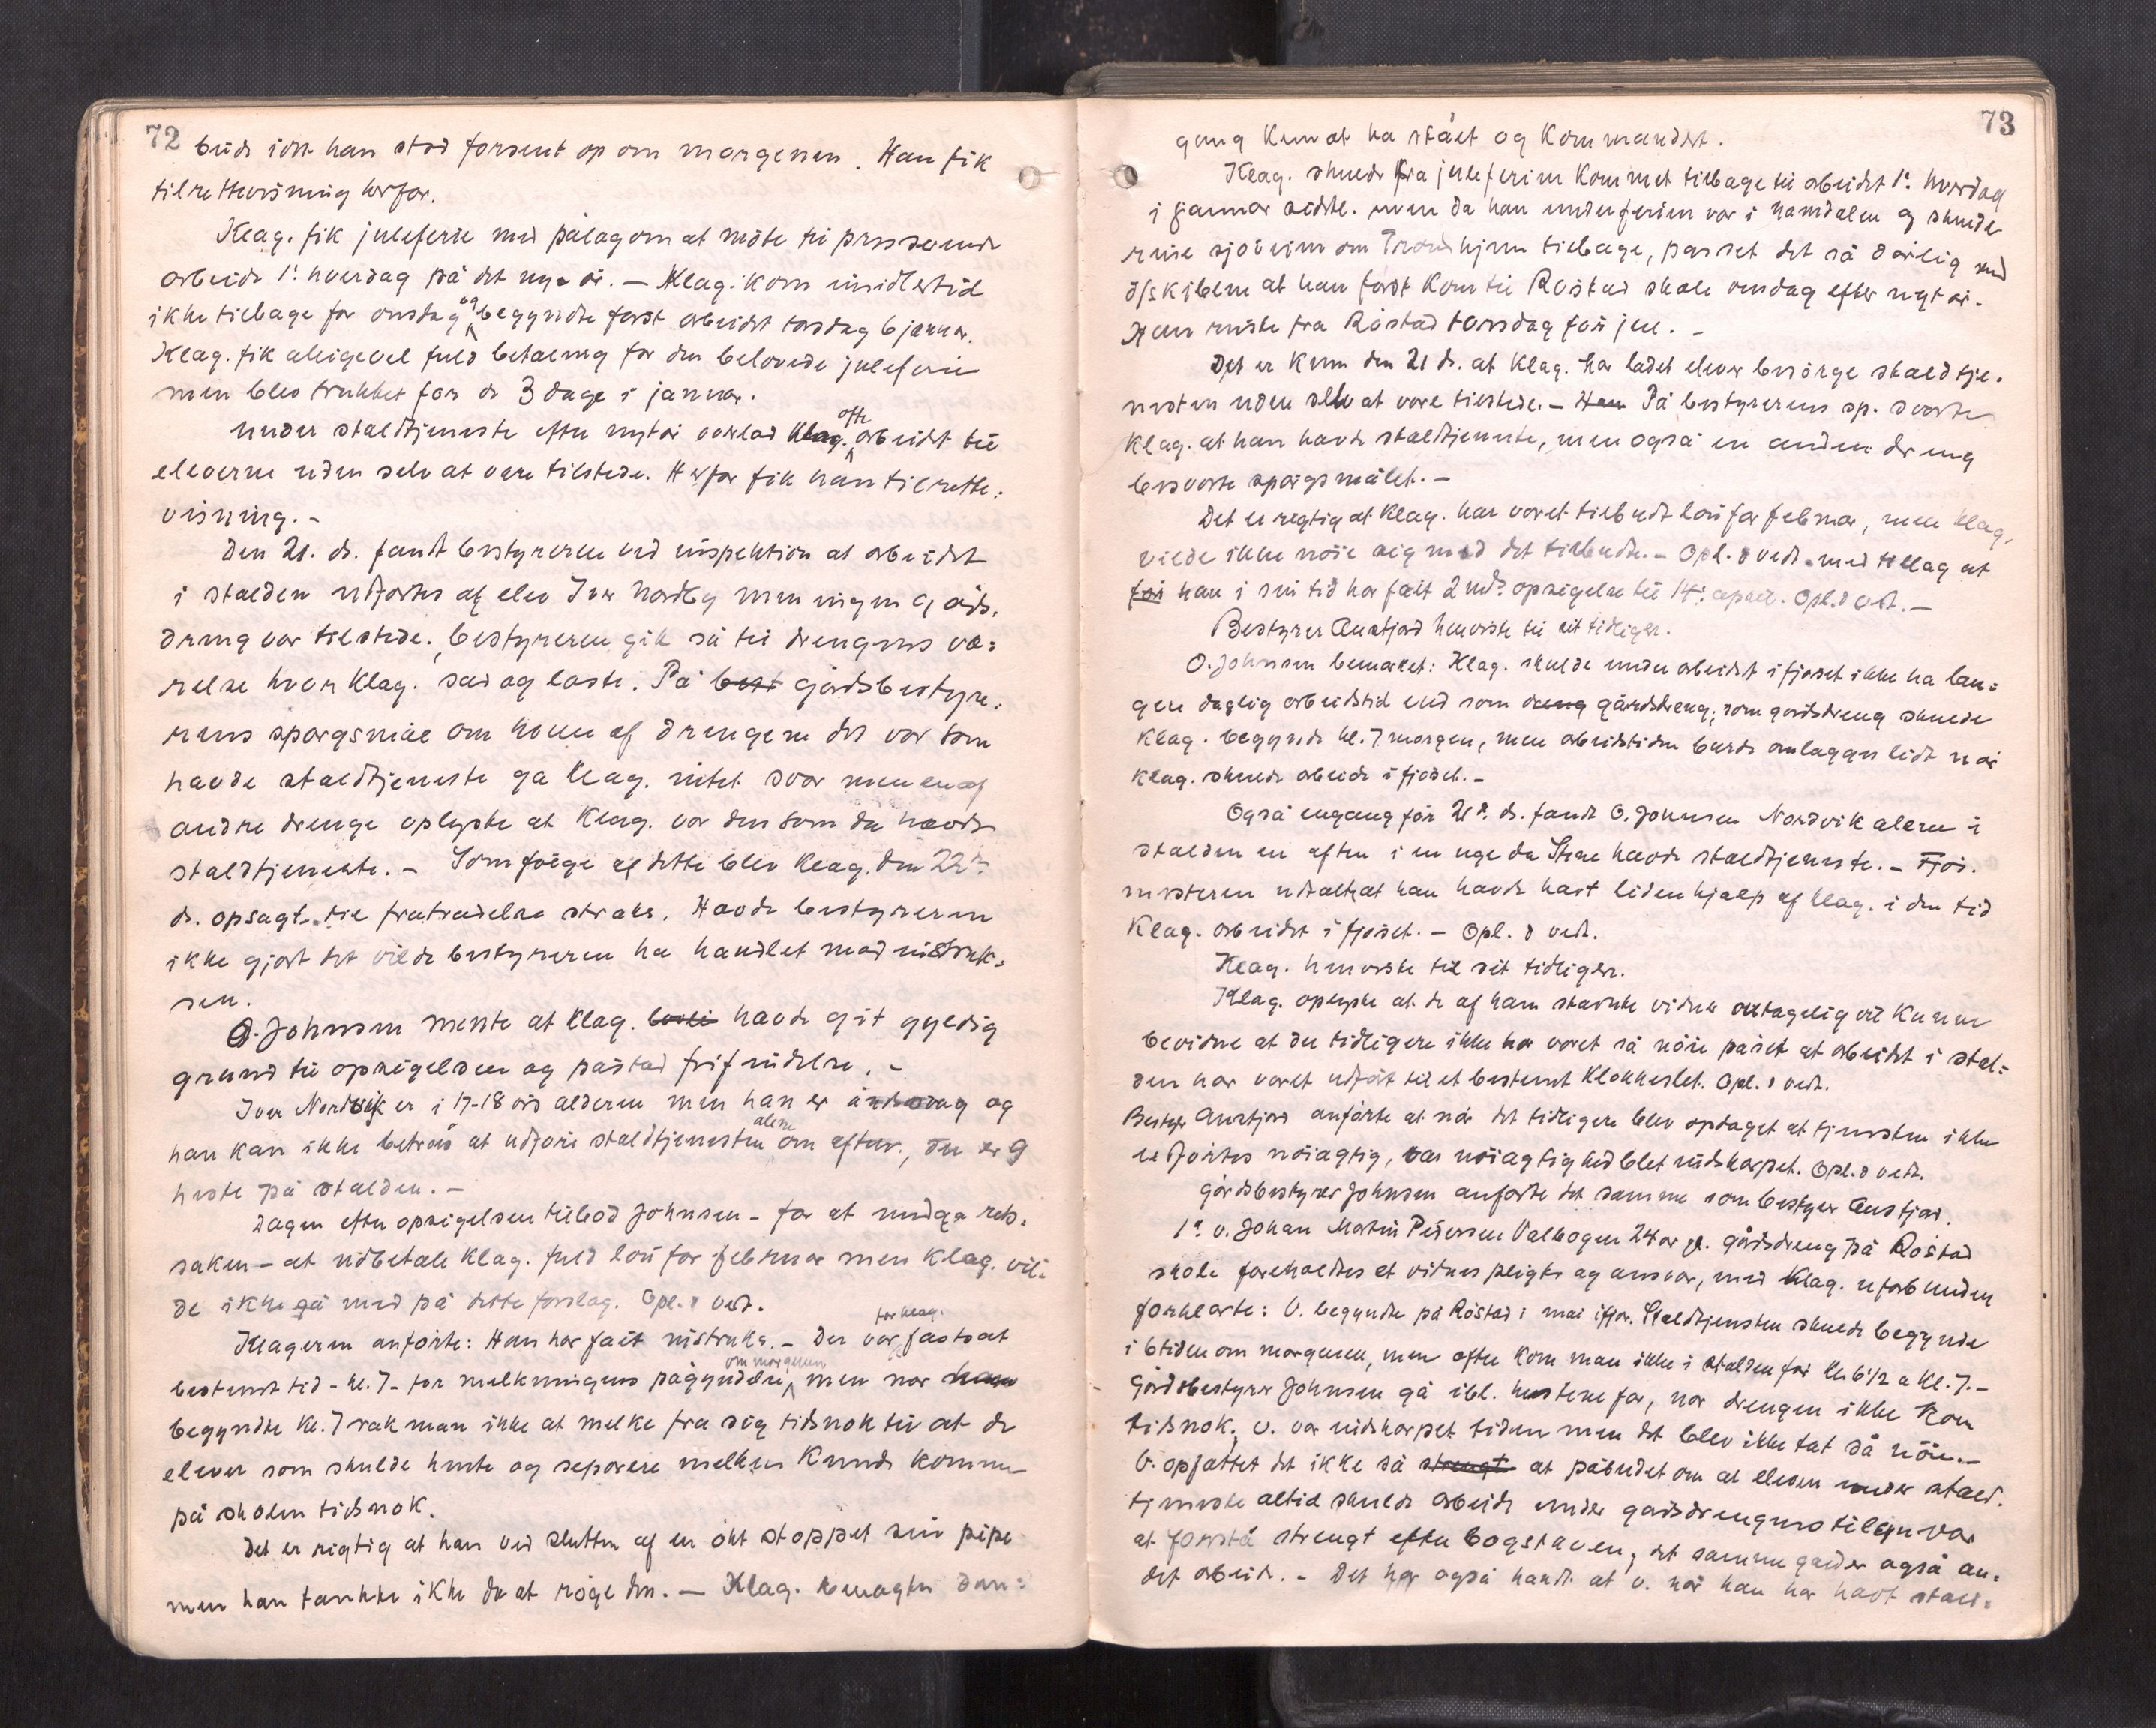 72
beide idet han stod forsent op om morgenen. Han fik
tilrettevisning herfor.
Klag. fik juleferie med pålæg om at möte til præsterende
arbeide 1ste hverdag på det nye år. – Klag. kom imidlertid
ikke tilbage för onsdag og begyndte først arbeidet torsdag 6 januar.
Klag. fik alligevel fuld betaling for den belovede juleferie
men blev trukket for de 3 dage i januar.
Under staldtjeneste efter nytår overlod klag. ofte arbeidet til
eleverne uden selv at være tilstede. Herfor fik han tilrette-
visning. –
Den 21. ds. fandt bestyreren ved inspektion at arbeidet
i stalden udførtes af elev Iver Nordvig men ingen gårds-
dreng var tilstede. Bestyreren gik så til drengenes væ-
relse hvor klag. sad og læste. På best gårdsbestyre-
rens spørgsmål om hvem af drengene det var som
havde staldtjeneste ga klag. intet svar men en af
andre drenge oplyste at klag. var den som da havde
staldtjeneste. – Som følge af dette blev klag. den 22de
ds. opsagt til fratrædelse straks. Havde bestyreren
ikke gjort det vilde bestyreren ha handlet mod instruk-
sen.
O. Johnsen mente at klag. havde git gyldig
grund til opsigelsen og påstod frifindelse. –
Iver Nordvik er i 17-18 års alderen men han er åndssvag og
han kan ikke betros at udføre staldtjenesten alene om aften, der er 9
heste på stalden. –
Dagen efter opsigelsen tilbød Johnsen – for at undgå rets-
saken – at udbetale klag. fuld løn for februar men klag. vil-
de ikke gå med på dette forslag. Opl. & vedt.
Klageren anførte: Han har fåt instruks. – Der var for klag. fastsat
bestemt tid – kl. 7 – for melkningens påbegyndelse om morgenen, men nor han
begyndte kl. 7 rak man ikke at melke fra sig tidsnok til at de
elever som skulde hente og separere melken kunde komme
på skolen tidsnok.
Det er rigtig at han ved slutten af en økt stoppet sin pipe
men han tænkte ikke da at røge den. – Klag. benægter den-
73
gang kun at ha stået og kommandert.
Klag. skulde fra juleferien kommet tilbage til arbeidet 1ste hverdag
i januar sidstl. men da han under ferien var i Namdalen og skulde
reise sjöveien om Trondhjem tilbage, passet det så dårlig med
d/skibene at han først kom til Røstad skole onsdag efter nytår.
Han reiste fra Røstad torsdag för jul. –
Det er kun den 21 ds. at klag. har ladet elever besörge staldtje-
nesten uden selv at være tilstede. – Han På bestyrerens sp. svarte
klag. at han havde staldtjeneste, men også en anden dreng
besvarte spörgsmålet. –
Det er rigtig at klag. har været tilbudt løn for februar, men klag.
vilde ikke nøie sig med det tilbudte. – Opl. & vedt. med tillæg at
for han i sin tid har fåt 2 mds opsigelse til 14. april. Opl. & vedt. –
Bestyrer Aurstjad henviste til sit tidligere.
O. Johnsen bemærket: Klag. skulde under arbeidet i fjøset ikke ha læn-
gere daglig arbeidstid end som dreng gårdsdreng; som gårdsdreng skulde
klag. begynde kl. 7 morgen, men arbeidstiden burde omlægges lidt når
klag. skulde arbeide i fjøset. –
Også engang för 21de ds. fandt O. Johnsen Nordvik alene i
stalden en aften i en uge da Stene havde staldtjeneste. – Fjøs-
mesteren udtalte at han havde hat liden hjælp af klag. i den tid
klag. arbeidet i fjøset. – Opl. & vedt.
Klag. henviste til sit tidligere.
Klag. oplyste at de af ham stævnte vidner antagelig vil kunne
bevidne at der tidligere ikke har været så nöie påset at arbeidet i stal-
den har været udført til et bestemt klokkeslet. Opl. & vedt.
Bestyr. Aurstjad anførte at når det tidligere blev opdaget at tjenesten ikke
udførtes nöiagtig, var nöiagtighed blet indskærpet. Opl. & vedt.
Gårdsbestyrer Johnsen anførte det samme som bestyrer Aurstjad.
1ste v. Johan Martin Petersen Valbogen 24 år gl. gårdsdreng på Røstad
skole foreholdtes et vidnes pligter og ansvar, med klag. uforbunden
forklarte: V. begyndte på Røstad i mai ifjor. Staldtjenesten skulde begynde
i 6 tiden om morgenen, men ofte kom man ikke i stalden før kl. 6½ a kl. 7. –
Gårdsbestyrer Johnsen gå ibl. hestene for, nor drengen ikke kom
tidsnok; v. var indskærpet tiden men det blev ikke tat så nöie. –
V. opfattet det ikke så strengt at påbudet om at eleven under stald-
tjeneste altid skulde arbeide under gårdsdrengens tilsyn var
at forstå strengt efter bogstaven; det samme gælder også an-
det arbeide. – Det har også hændt at v. når han har havt stald-